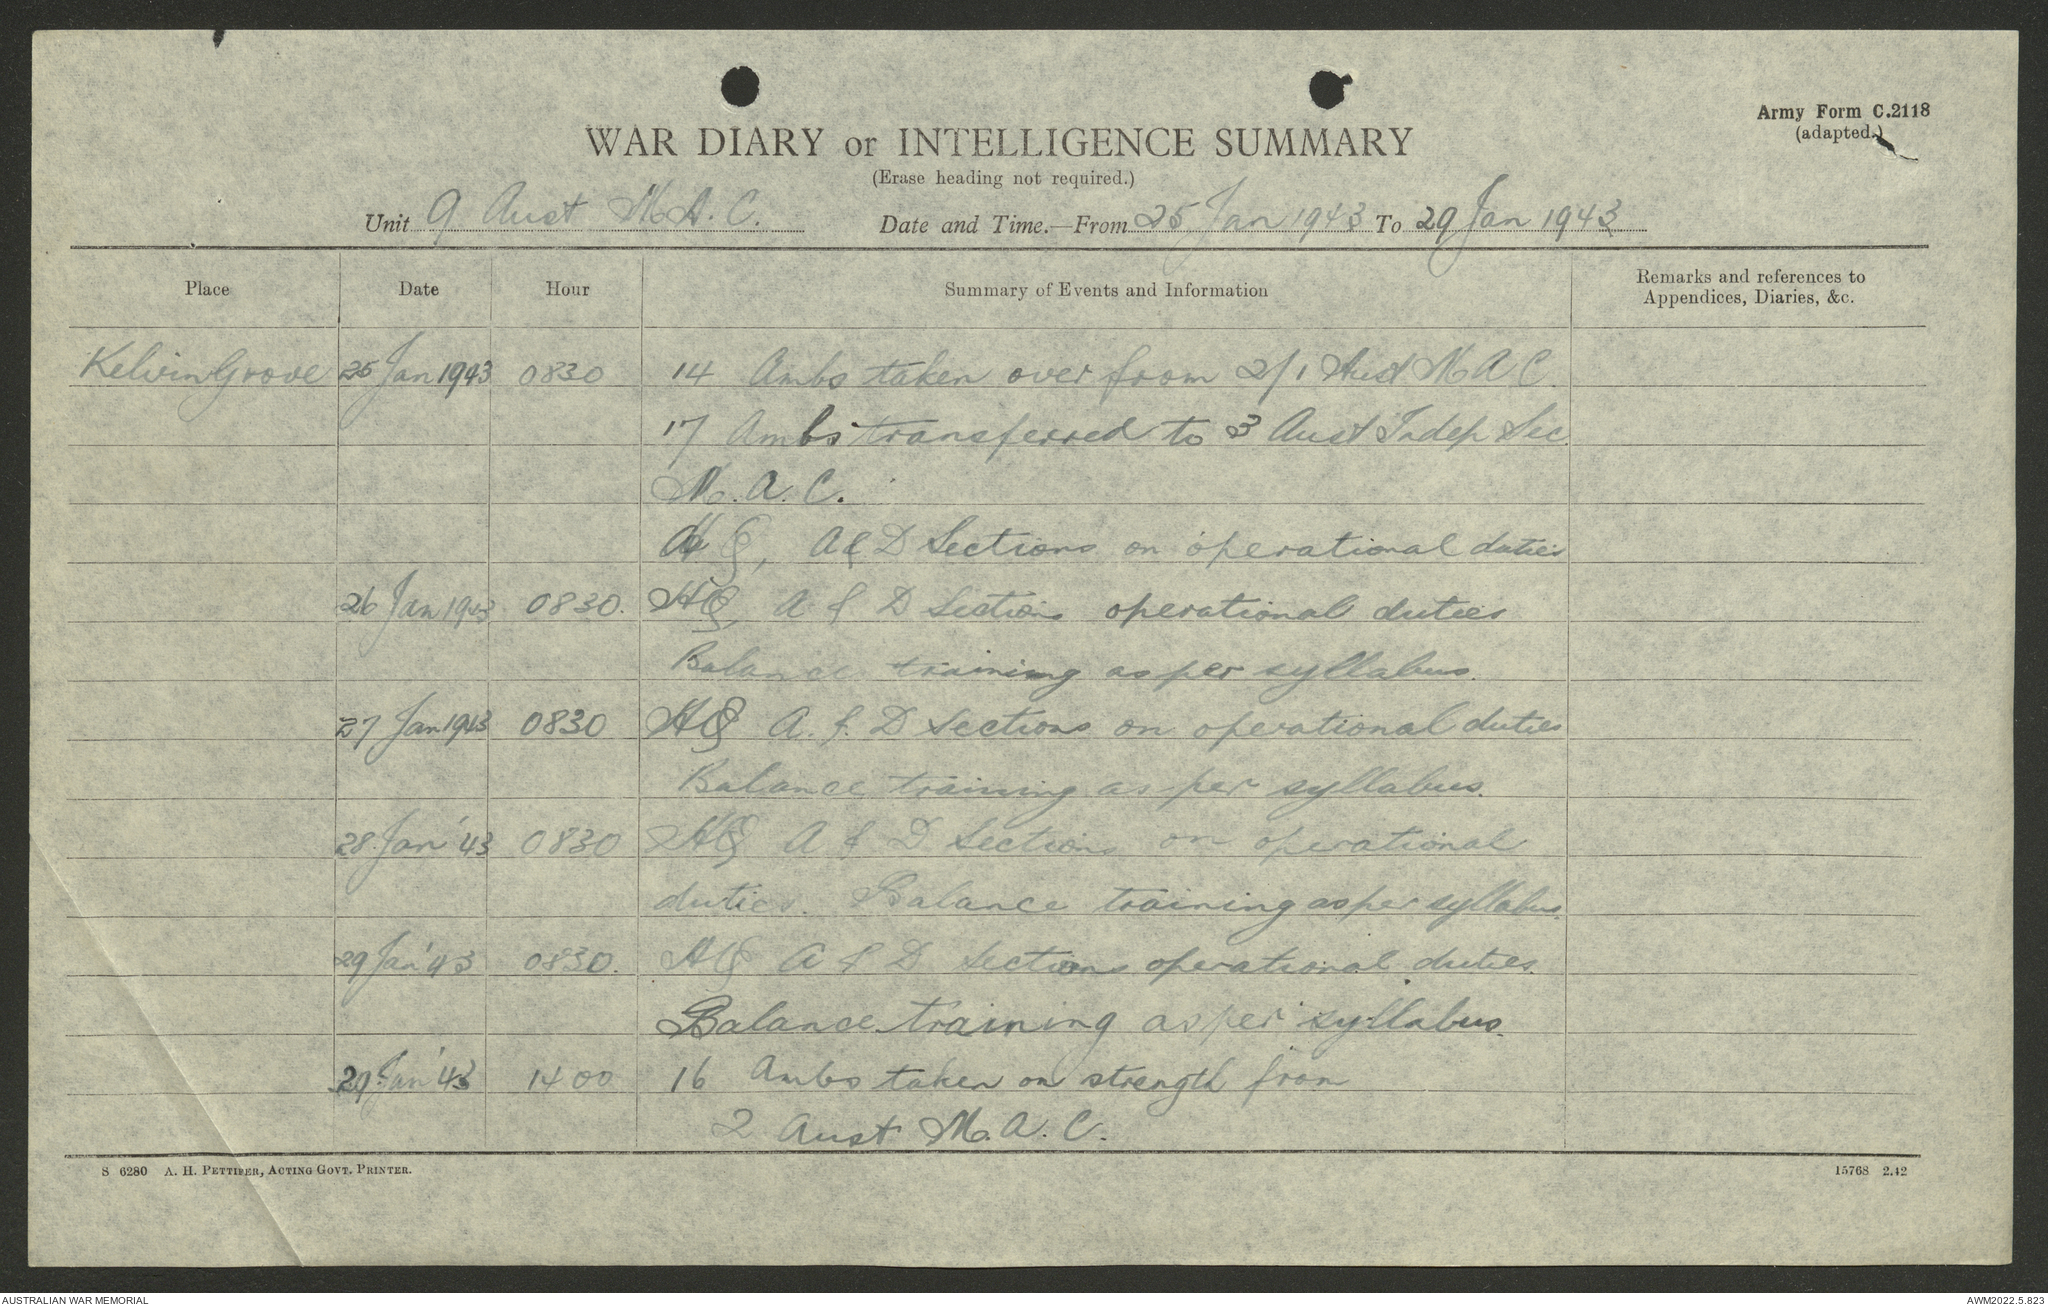 Army Form C.2118
(adapted.)
WAR DIARY or INTELLIGENCE SUMMARY
(Erase heading not required.)
Unit 9 Aust M.A.C. Date and Time.—From 25 Jan 1943 To 29 Jan 1943
Place Date Hour Summary of Events and Information Remarks and references to
Appendices, Diaries, &c.
Kelvin Grove 25 Jan 1943 0830 14 Ambs taken over from 2/1 Aust M A C.
17 Ambs transferred to 3 Aust Indep Sec
M. A. C.
HQ, A & D Sections on operational duties
26 Jan 1943 0830. HQ, A & D Sections operational duties
Balance training as per syllabus.
27 Jan 1943 0830 HQ A. & D Sections on operational duties
Balance training as per syllabus.
28 Jan '43 0830 HQ A & D Sections on operational
duties. Balance training as per syllabus.
29 Jan '43 0830. HQ A & D Sections operational duties.
Balance training as per syllabus.
29 Jan '43 1400 16 Ambs taken on strength from
2 Aust M.A.C.
S 6280 A. H. PETTIFER, ACTING GOVT. PRINTER. 15768 2.42
AUSTRALIAN WAR MEMORIAL AWM2022.5.823